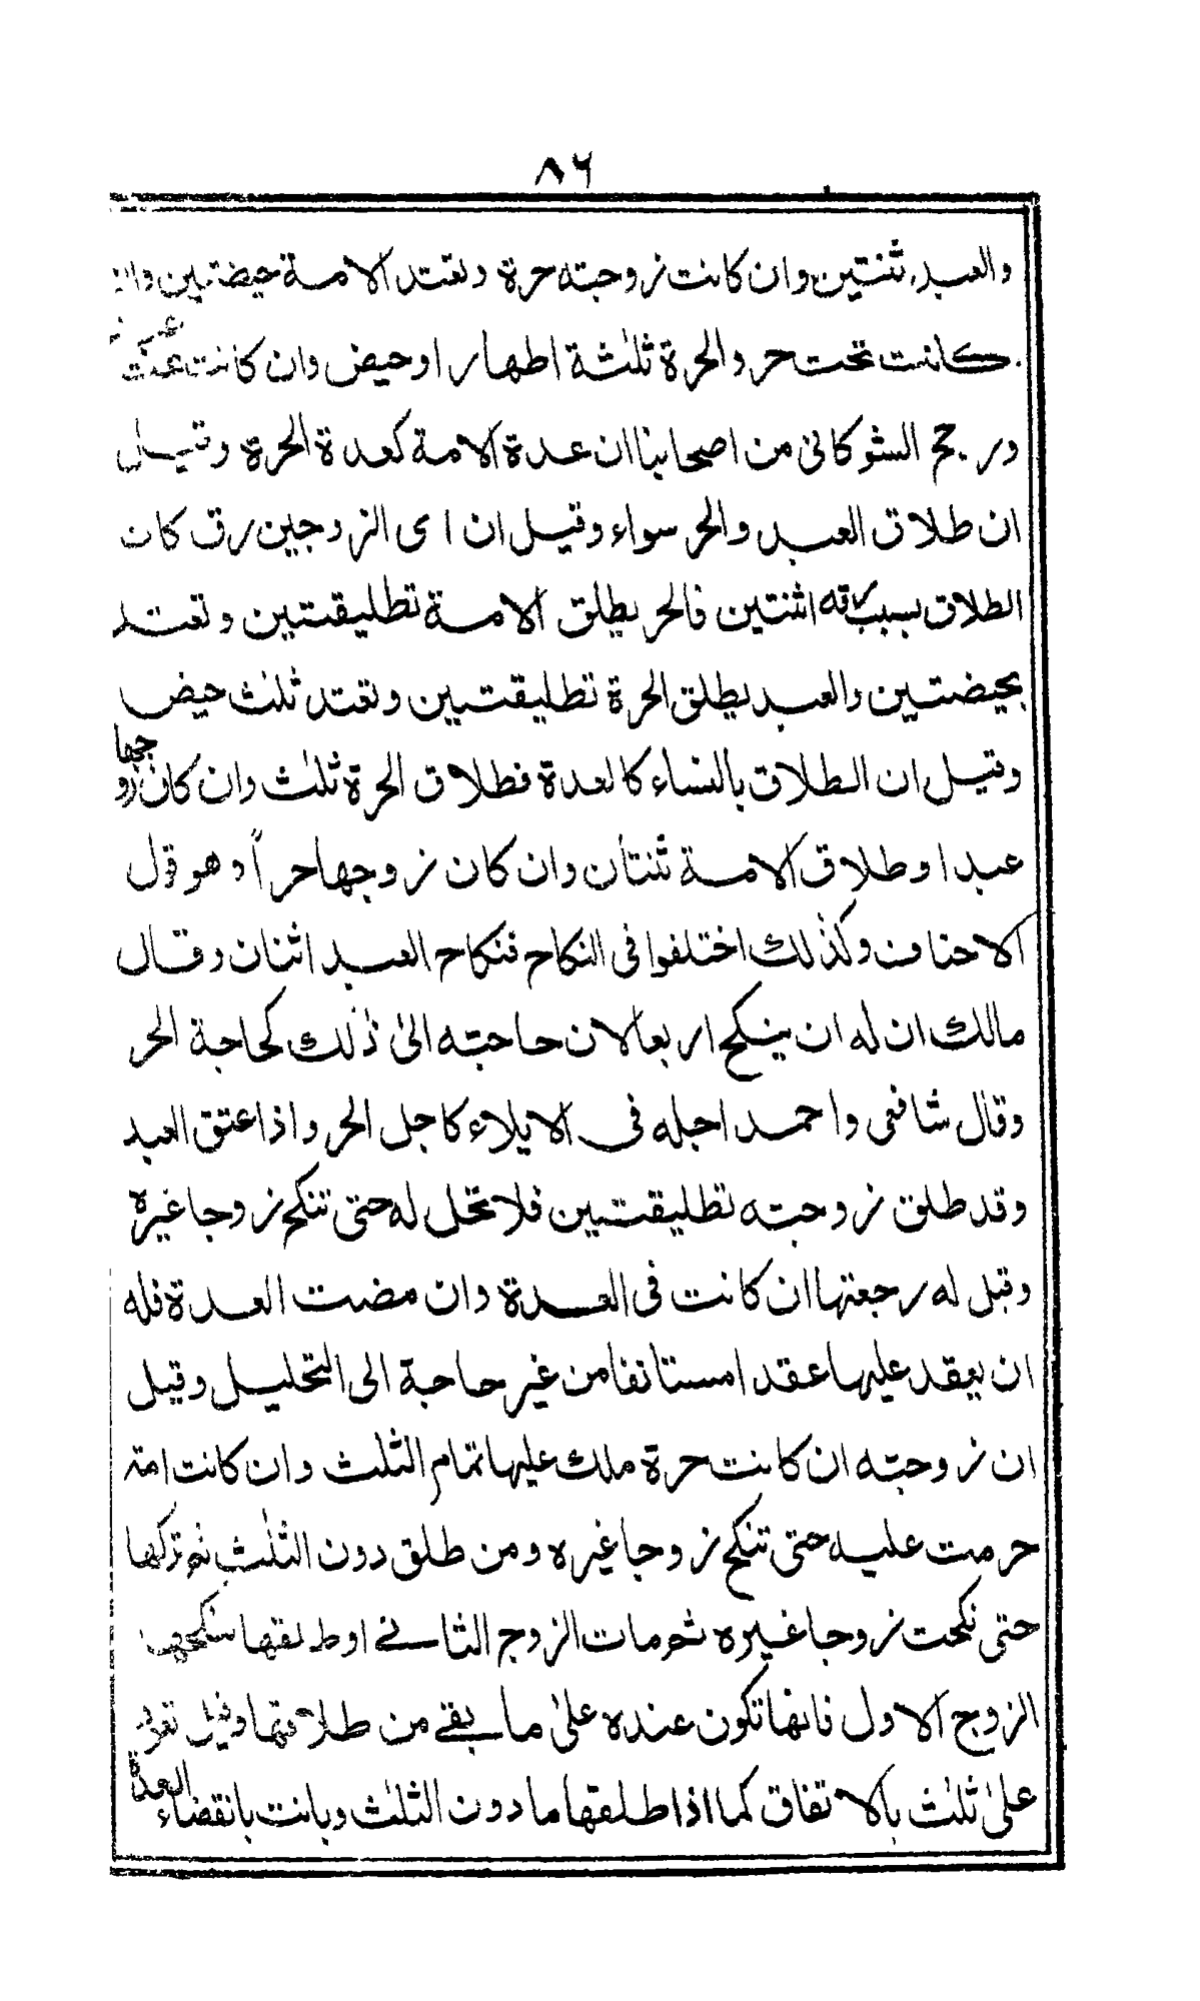 ٨٦
والعبد ثنتين وان كانت زوجته حرة وتعتد الامة حيضتين وان
كانت تحت حر والحرة ثلثة اطهار او حيض وان كانت تحت عبد
ورجح الشوكانى من اصحابنا ان عدة الامة كعدة الحرة وقيل
ان طلاق العبد والحر سواء وقيل ان اى الزوجين رق كان
الطلاق بسبب رقه اثنتين فالحر يطلق الامة تطليقتين وتعتد
بحيضتين والعبد يطلق الحرة تطليقتين وتعتد ثلث حيض
وقيل ان الطلاق بالنساء كالعدة فطلاق الحرة ثلث وان كان زوجها
عبدا وطلاق الامة ثنتان وان كان زوجها حراً وهو قول
الاحناف وكذلك اختلفوا فى النكاح فنكاح العبد اثنان وقال
مالك ان له ان ينكح اربعا لان حاجته الى ذلك كحاجة الحر
وقال شافعى واحمد اجله فى الايلاء كاجل الحر واذا عتق العبد
وقد طلق زوجته تطليقتين فلا تحل له حتى تنكح زوجا غيره
وقيل له رجعتها ان كانت فى العدة وان مضت العدة فله
ان يعقد عليها عقدا مستانفا من غير حاجة الى التحليل وقيل
ان زوجته ان كانت حرة ملك عليها تمام الثلث وان كانت امة
حرمت عليه حتى تنكح زوجا غيره ومن طلق دون الثلث ثم تركها
حتى نكحت زوجا غيره ثم مات الزوج الثانے او طلقها فنكحها
الزوج الاول فانها تكون عنده على ما بقے من طلاقها وقيل تعود
على ثلث بالاتفاق كما اذا طلقها ما دون الثلث وبانت بانقضاء العدة